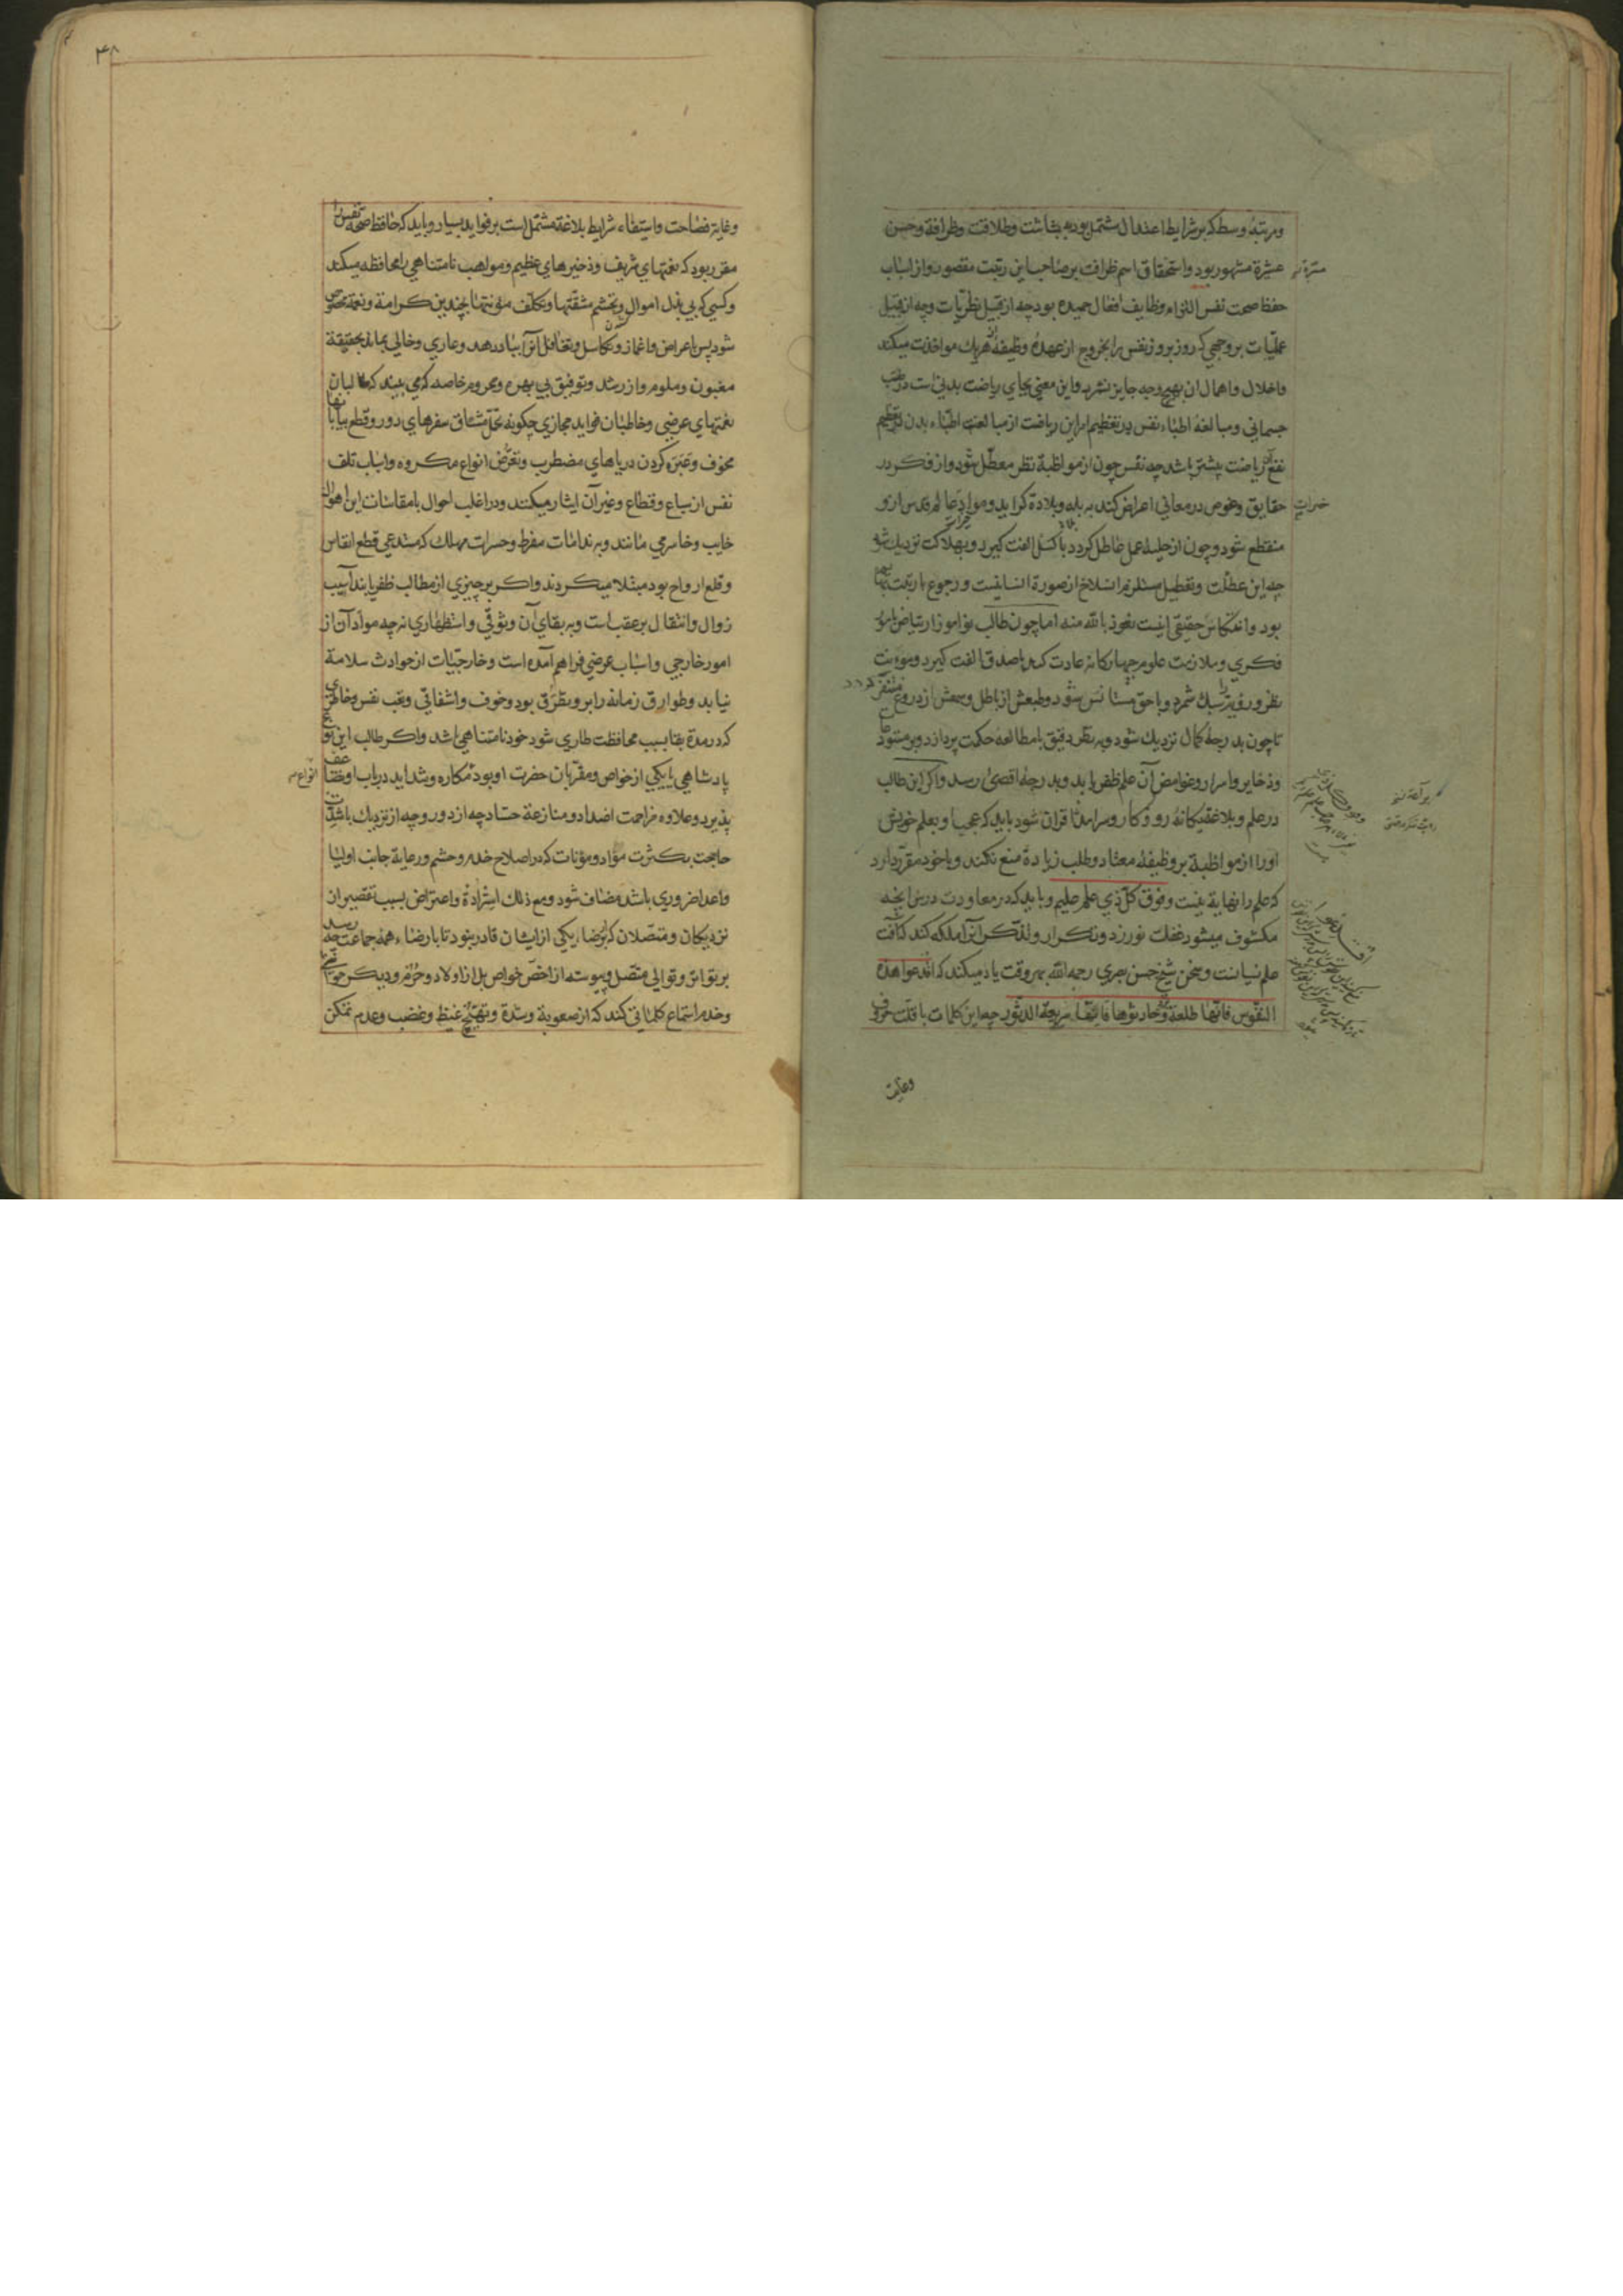 ومرتبهٔ وسط که بر شرایط اعتدال مشتمل بود به بشاشت وطلاقت وظرافة وحسن
عشرة مشهور بود واستحقاق اسم ظرافت بر صاحب این رتبت مقصور واز اسباب
حفظ صحت نفس التزام وظایف افعال حمیده بود چه از قبیل نظریّات وچه از قبیل
عملیّات بر وجهی که روز بروز نفس را بخروج از عهدهٔ وظیفهٔ هر یك مواخذت میکند
واخلال واهمال ان بهیچ وجه جایز نشمرد واین معنی بجای ریاضت بدنی است در طب
جسمانی ومبالغهٔ اطبّاء نفس در تعظیم امر این ریاضت از مبالغت اطبّاء بدن در تعظیم
نفع آن ریاضت بیشتر باشد چه نفس چون از مواظبة نظر معطّل شود واز فکر در
حقایق وغوص در معانی اعراض کند به بله وبلادة کراید ومواد خیرات عالم قدس ازو
منقطع شود وچون از حلیهٔ عمل عاطل کردد با کسل الفت کیرد وبهلاکت نزدیك شود
چه این عطلت وتعطیل مستلزم انسلاخ از صورة انسانیست ورجوع با رتبت بهایم
بود وانتکاس حقیقی اینست نعوذ بالله منه اما چون طالب نواموز ارتیاض بامور
فکری وملازمت علوم چهارکانه عادت کند با صدق الفت کیرد وموونت
نظر ورویّت را سبك شمرد وبا حق مستانس شود وطبعش از باطل وسمعش از دروغ متنفّر کردد
تا چون بدرجهٔ کمال نزدیك شود وبه نظر دقیق بامطالعهٔ حکمت پردازد وبر مستودعات
وذخایر واسرار وغوامض آن علم ظفر یابد وبدرجهٔ اقصی رسد واکر این طالب
در علم وبلاغة یکانهٔ روزکار وسرامد اقران شود باید که عجب او بعلم خویش
او را از مواظبة بر وظیفهٔ معتاد وطلب زیادة منع نکند وبا خود مقرّر دارد
که علم را نهایة نیست وفوق کلّ ذي علم علیم وباید که در معاودت درس آنچه
مکشوف میشود غفلت نورزد وتکرار وتذکّر انرا ملکه کند که آفت
علم نسیانست وسخن شیخ حسن بصری رحمه الله بهر وقت یاد میکند که اقدعوا هذه
النفوس فانّها طلعة وحادثوها فانّها سریعة الدّثور چه این کلمات با قلّت حروف
وغایت
وغایة فصاحت واستیفاء شرایط بلاغة مشتمل است بر فواید بسیار وباید که حافظ صحّة نفس را
مقرر بود که نعمتهای شریف وذخیرهای عظیم ومواهب نامتناهی را محافظه میکند
وکسی که بی بذل اموال وتجشّم مشقّتها وتکلّف مؤنتها بچندین کرامة ونعمة مخصوص
شود پس باعراض واغماز وتکاسل وتغافل آنرا بباد دهد وعاری وخالی بماند بحقیقة
مغبون وملوم واز رشد وتوفیق بی بهره ومحروم خاصه که می بیند که طالبان
نعمتهای عرضی وخاطبان فواید مجازی چکونه تحمّل مشاق سفرهای دور وقطع بیابانها
مخوف وعَبَره کردن دریاهای مضطرب وتعرّض انواع مکروه واسباب تلف
نفس از سباع وقطاع وغیر آن ایثار میکنند ودر اغلب احوال با مقاسات این اهوال
خایب وخاسر می مانند وبه ندامات مفرط وحسرات مهلك که مستدعی قطع انفاس
وقلع ارواح بود مبتلا میکردند واکر بر چیزی از مطالب ظفر یابند آسیب
زوال وانتقال بر عقب است وبه بقای آن وثوقی واستظهاری نه چه موادّ آن از
امور خارجی واسباب عرضی فراهم آمده است وخارجیّات از حوادث سلامة
نیابد وطوارق زمانه را برو تطرّق بود وخوف واشفاقی وتعب نفس وخاطری
که در مدة بقا بسبب محافظت طاری شود خود نامتناهی باشد واکر طالب این نوع
پادشاهی یا یکی از خواص ومقرّبان حضرت او بود مکاره وشداید در باب او تضاعف
پذیرد وعلاوه مزاحمت اضداد ومنازعة حسّاد چه از دور وچه از نزدیك باشدّت
حاجت بکثرت موّاد ومؤنات که در اصلاح خدم وحشم ورعایة جانب اولیا
واعدا ضروری باشد مضاف شود ومع ذلك استزادة واعتراض بسبب تقصیر از
نزدیکان ومتّصلان که برضاء یکی از ایشان قادر نبود تا بارضاء همه جماعت چه رسد
بر تواتر وتوالی متصل وپیوسته از اخصّ خواص بل از اولاد وحُرَم ودیکر حواشی
وخدم استماع کلماتی کند که از صعوبة وشدة وتهیّج غیظ وغضب وعدم تمکن